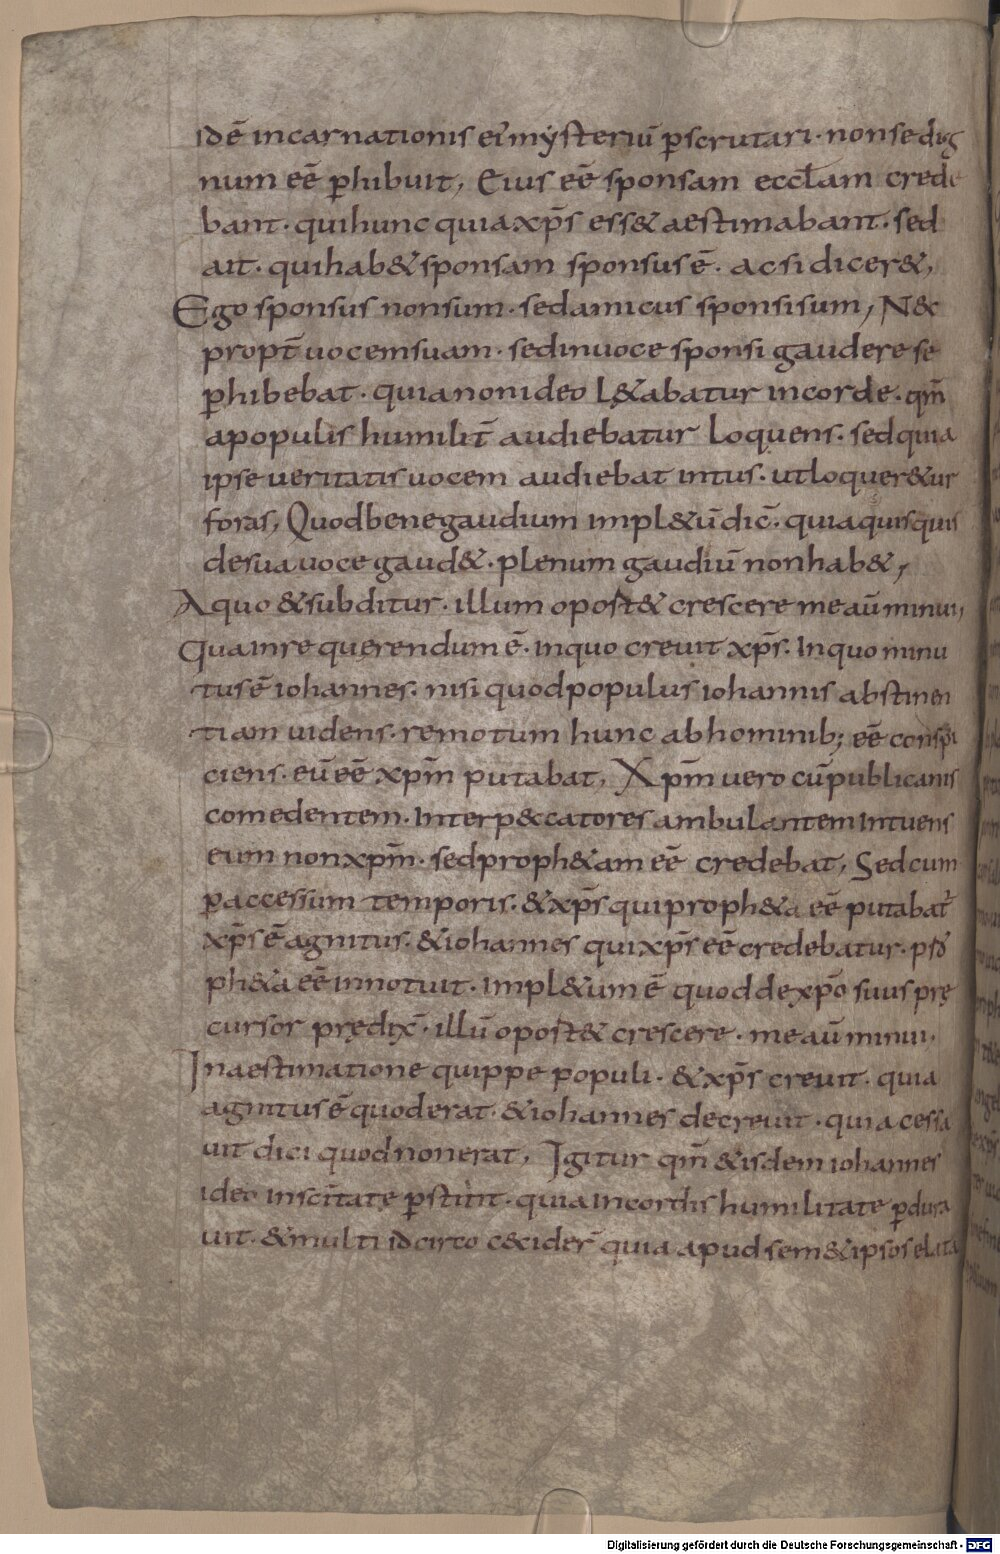 idē incarnationis ei᾿ mysteriū ꝑscrutari · non se dig
num eē ꝑhibuit, Eius eē sponsam eccłam crede
bant · qui hunc quia xp̄s ess& aestimabant · sed
ait · qui hab& sponsam sponsus ē · ac si dicer&,
Ego sponsus non sum · sed amicus sponsi sum, N&
propt̄ uocem suam · sed in uoce sponsi gaudere se
ꝑhibebat · quia non ideo l&abatur in corde · qm̄
a populis humilit̄ audiebatur loquens · sed quia
ipse ueritatis uocem audiebat intus · ut loquer&ur
foras, Quod bene gaudium impl&ū dic̄ · quia quisquis
de sua uoce gaud& · plenum gaudiū non hab&,
A quo & subditur · illum oport& crescere me aū minui,
Qua in re querendum ē · in quo creuit xp̄s · In quo minu
tus ē iohannes · nisi quod populus iohannis abstinen
tiam uidens · remotum hunc ab hominib; eē conspi
ciens · eū eē xpm̄ putabat, Xpm̄ uero cū publicanis
comedentem · Inter p&catores ambulantem intuens
eum non xpm̄ · sed proph&am eē credebat, Sed cum
ꝑ accessum temporis · & xp̄s qui proph&a eē putabat᾿
xp̄s ē agnitus · & iohannes qui xp̄s eē credebatur · pro
ph&a eē innotuit · Impl&um ē quod de xp̄o suus prę
cursor prędix̄ · illū oport& crescere · me aū minui ·
In aestimatione quippe populi · & xp̄s creuit · quia
agnitus ē quod erat · & iohannes decreuit · quia cessa
uit dici quod non erat, Igitur qm̄ & isdem iohannes
ideo in scītate ꝑstitit · quia in cordis humilitate ꝑdura
uit · & multi idcirco c&cider̄ quia apud sem&ipsos elata
Digitalisierung gefördert durch die Deutsche Forschungsgemeinschaft - DFG